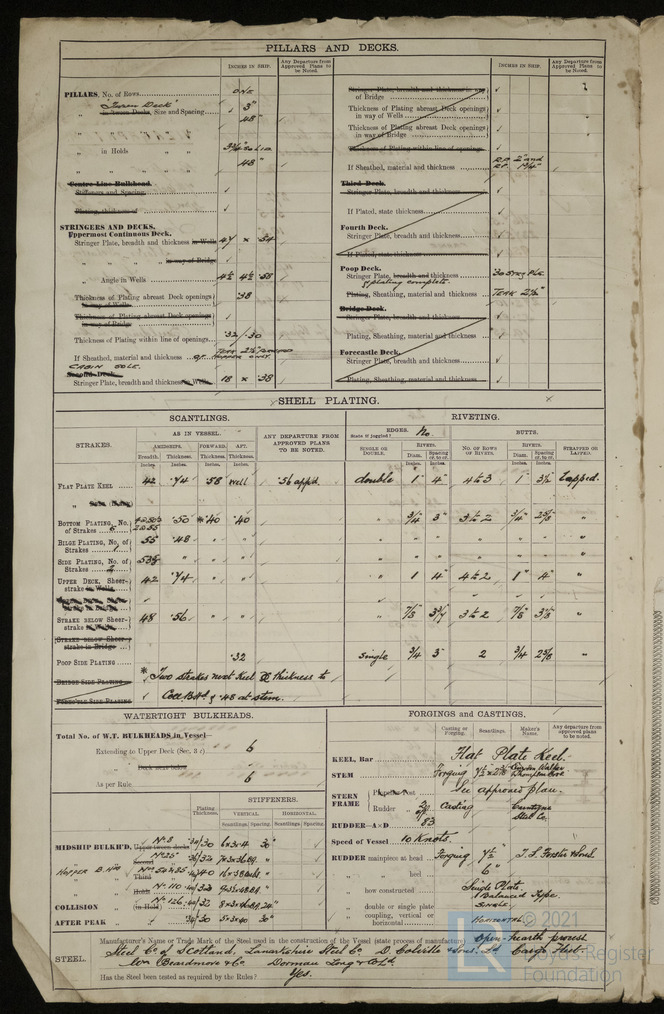 PILLARS AND DECKS.
INCHES IN SHIP.
Any Departure from Approved Plans to be Noted.
PILLARS, No. of Rows ONE
" "Tween Deck" in Tween Decks, Size and Spacing 3"
48"
" in Holds
48"
Centre Line Bulkhead.
Stiffeners and Spacing
Plating, thickness of
STRINGERS AND DECKS.
Uppermost Continuous Deck.
Stringer Plate, breadth and thickness in Wells 47 × .54
" " in way of Bridge
" Angle in Wells 4½ 4½ .58
Thickness of Plating abreast Deck openings in way of Wells .38
Thickness of Plating abreast Deck openings in way of Bridge
Thickness of Plating within line of openings .32/.30
If Sheathed, material and thickness
CABIN SOLE.
Second Deck.
Stringer Plate, breadth and thickness in Wells 18 × .38
INCHES IN SHIP.
Any Departure from Approved Plans to be Noted.
Stringer Plate, breadth and thickness in way of Bridge
Thickness of Plating abreast Deck openings in way of Wells
Thickness of Plating abreast Deck openings in way of Bridge
Thickness of Plating within line of openings
If Sheathed, material and thickness
Third Deck.
Stringer Plate, breadth and thickness
If Plated, state thickness
Fourth Deck.
Stringer Plate, breadth and thickness
If Plated, state thickness
Poop Deck.
Stringer Plate, breadth and thickness
& plating complete.
Plating, Sheathing, material and thickness TEAK 2½"
Bridge Deck.
Stringer Plate, breadth and thickness
Plating, Sheathing, material and thickness
Forecastle Deck.
Stringer Plate, breadth and thickness
Plating, Sheathing, material and thickness
SHELL PLATING.
SCANTLINGS.
RIVETING.
STRAKES.
AS IN VESSEL.
AMIDSHIPS. FORWARD. AFT.
Breadth. Thickness. Thickness. Thickness.
Inches. Inches. Inches. Inches.
ANY DEPARTURE FROM APPROVED PLANS TO BE NOTED.
EDGES. No.
State if joggled?
SINGLE OR DOUBLE.
RIVETS.
Diam. Spacing cr. to cr.
Inches. Inches.
BUTTS.
NO. OF ROWS OF RIVETS.
RIVETS.
Diam. Spacing cr. to cr.
Inches. Inches.
STRAPPED OR LAPPED.
FLAT PLATE KEEL 42 .74 .58 Well .56 app'd double 1" 4" 4 & 3 1" 3½ Lapped.
BOTTOM PLATING, No. of Strakes .50 *.40 .40 " ¾" 3" 3 & 2 ¾" "
BILGE PLATING, No. of Strakes 1 55 .48 " " " " " " " " "
SIDE PLATING, No. of Strakes 2 " " " " " " " " "
UPPER DECK, Sheerstrake in Wells 42 .74 " " " 1 4" 4 & 2 1" 4" "
STRAKE BELOW Sheerstrake in Wells 48 .56 " " " 7/8" 3 & 2 7/8" "
STRAKE BELOW Sheerstrake in Bridge
POOP SIDE PLATING .32 single ¾ 3" 2 ¾ "
BRIDGE SIDE PLATING
FORECASTLE SIDE PLATING
* Two strakes next Keel thickness to
Coll Bhd & .48 at stem.
WATERTIGHT BULKHEADS.
Total No. of W.T. BULKHEADS in Vessel—
Extending to Upper Deck (Sec. 3 c) 6
" Deck next below
As per Rule 6
Plating Thickness.
STIFFENERS.
VERTICAL. HORIZONTAL.
Scantlings. Spacing. Scantlings. Spacing.
MIDSHIP BULKH'D, No 8 6×3×.4 30"
Upper tween decks
" " No 25
Second
HOPPER B. HDS " "
Third
" " No 110
Holds
COLLISION " (in Hold) No 126
AFTER PEAK " 5×3×.40 30"
FORGINGS AND CASTINGS.
Casting or Forging. Scantlings. Maker's Name. Any departure from approved plans to be noted.
KEEL, Bar Flat Plate Keel.
STEM Forging
STERN FRAME Propeller Post See approved plan.
" Rudder " Casting
Steel Co.
RUDDER—A×D 83
Speed of Vessel 10 Knots.
RUDDER mainpiece at head Forging 7½ T. S. Forster & Sons.
" " heel 6"
" how constructed Single Plate. Balanced Type
" double or single plate SINGLE.
" coupling, vertical or horizontal HORIZONTAL
STEEL. Manufacturer's Name or Trade Mark of the Steel used in the construction of the Vessel (state process of manufacture) Open-hearth process
Steel Co of Scotland, Lanarkshire Steel Co. D. Colville & Sons. Ld. Cargo Fleet.
Wm Beardmore & Co. Dorman Long & Co Ld.
Has the Steel been tested as required by the Rules? Yes.
LR © 2021
Lloyd's Register
Foundation